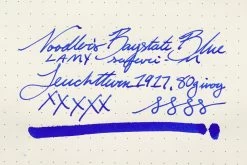 Noodler's Baystate Blue
LAMY safari
Leuchtturm 1917, 80g ivory
xxxxx